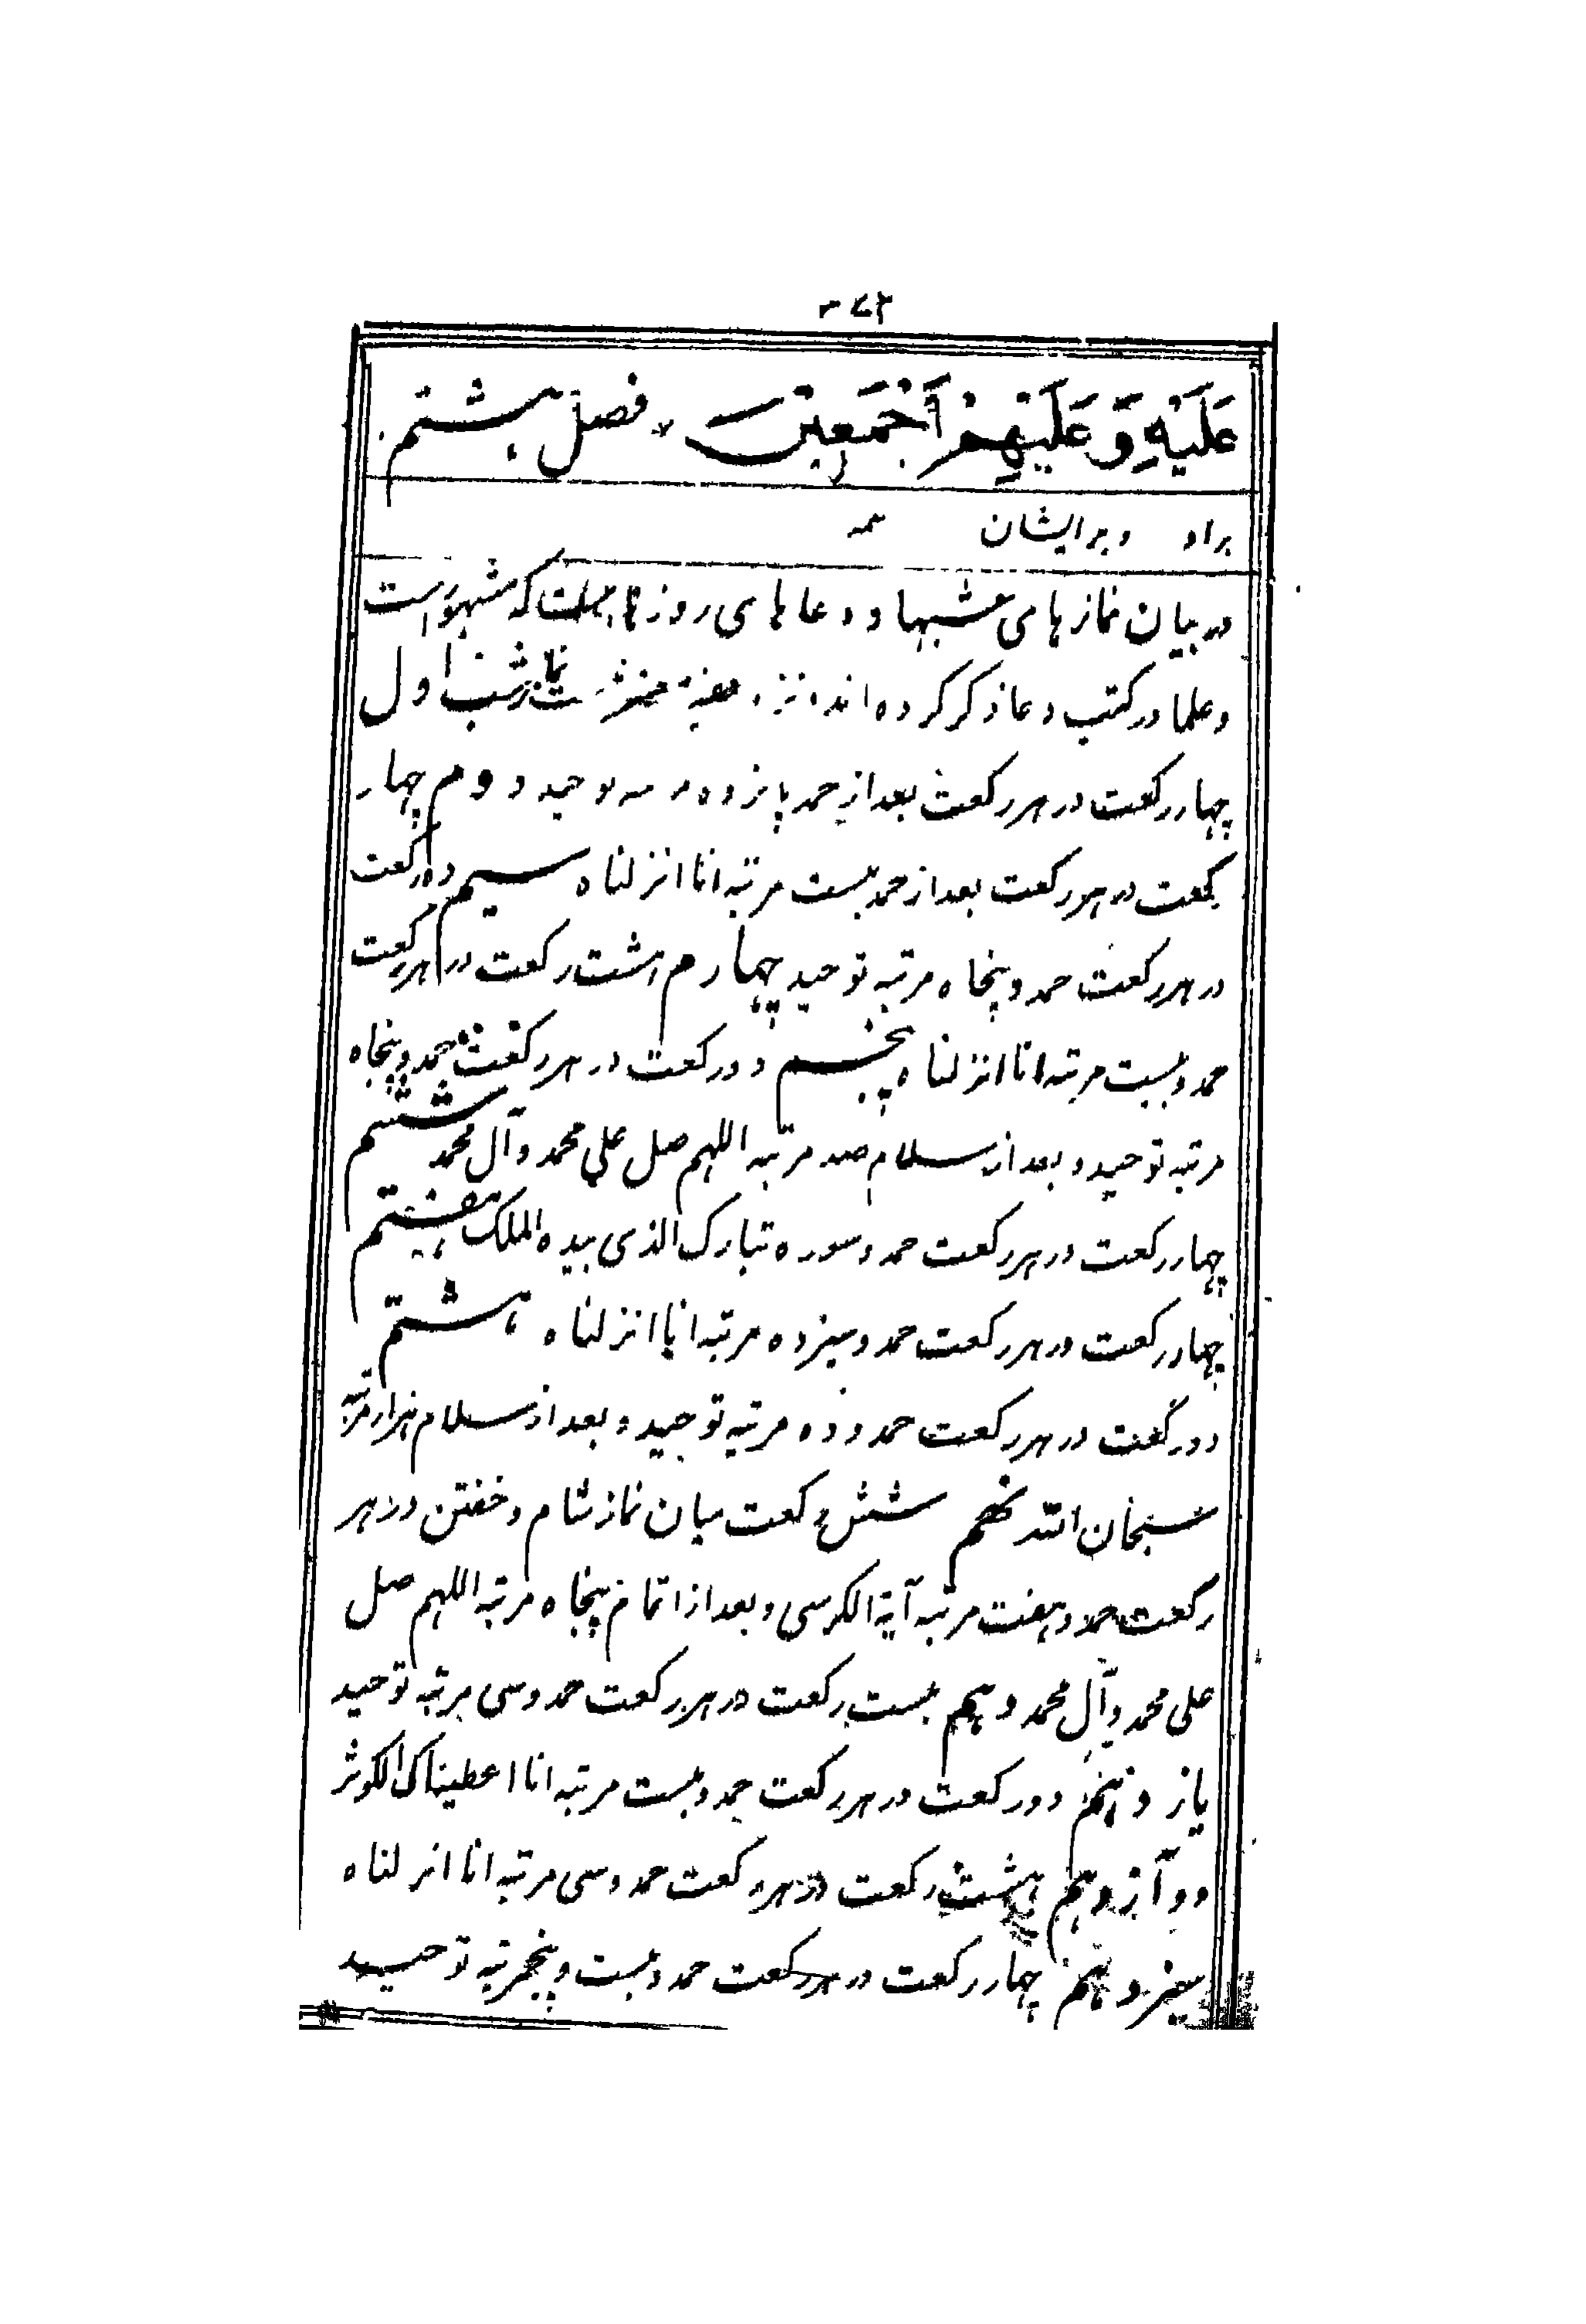 عَلَيْهِ وَعَلَيْهِمْ اَجْمَعِيْنَ فصل هشتم
براو وبرايشان همه
در بيان نمازهاى شبها و دعاهاى روزها كه مشهور است
وعلما در كتب دعا ذكر كرده اند نماز شب اول
چهار ركعت در هر ركعت بعد از حمد پانزده مرتبه توحيد دوم چهار
ركعت در هر ركعت بعد از حمد بيست مرتبه انا انزلناه سيم دوركعت
در هر ركعت حمد و پنجاه مرتبه توحيد چهارم هشت ركعت در هر ركعت
حمد وبيست مرتبه انا انزلناه پنجم دوركعت در هر ركعت حمد وپنجاه
مرتبه توحيد و بعد از سلام صد مرتبه اللهم صل على محمد وآل محمد ششم
چهار ركعت در هر ركعت حمد وسوره تبارك الذى بيده الملك هفتم
چهار ركعت در هر ركعت حمد وسيزده مرتبه انا انزلناه هشتم
دوركعت در هر ركعت حمد و ده مرتبه توحيد و بعد از سلام هزار مرتبه
سبحان الله نهم شش ركعت ميان نماز شام و خفتن در هر
ركعت حمد وهفت مرتبه آية الكرسى و بعد از اتمام پنجاه مرتبه اللهم صل
على محمد وآل محمد دهم بيست ركعت در هر ركعت حمد وسى مرتبه توحيد
يازدهم دوركعت در هر ركعت حمد وبيست مرتبه انا اعطيناك الكوثر
دوازدهم هشت ركعت در هر ركعت حمد وسى مرتبه انا انزلناه
سيزدهم چهار ركعت در هر ركعت حمد وبيست و پنجمرتبه توحيد